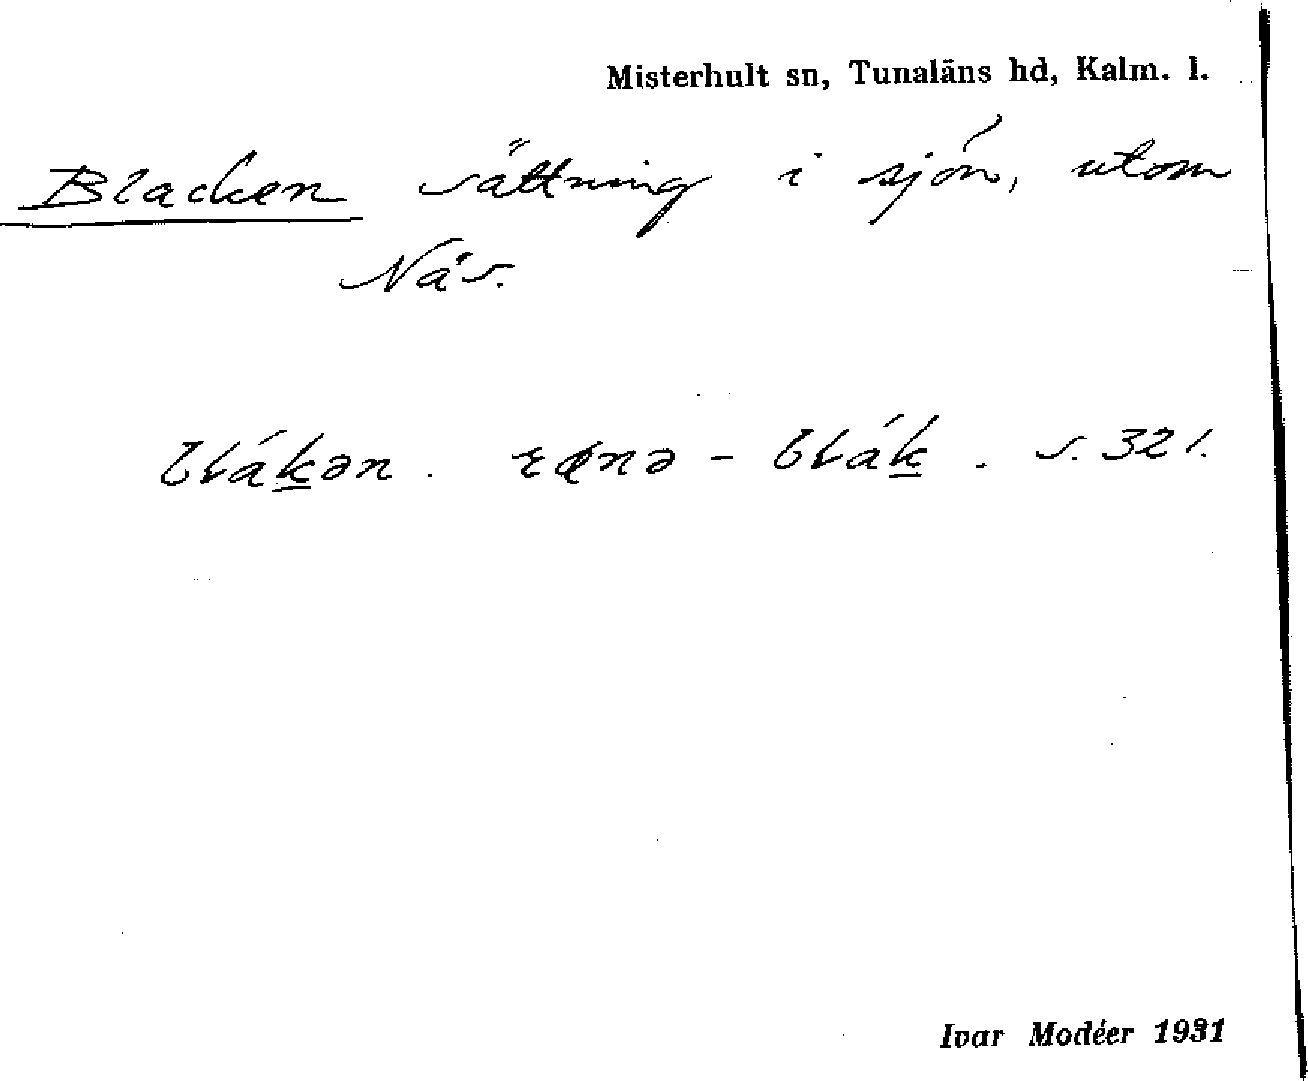 Misterhult sn, Tunaläns hd, Kalm. l.
Blacken sättning i sjön, utom
Näs.
blák̲ən. rənə - blák̲. s. 321.
Ivar Modéer 1931